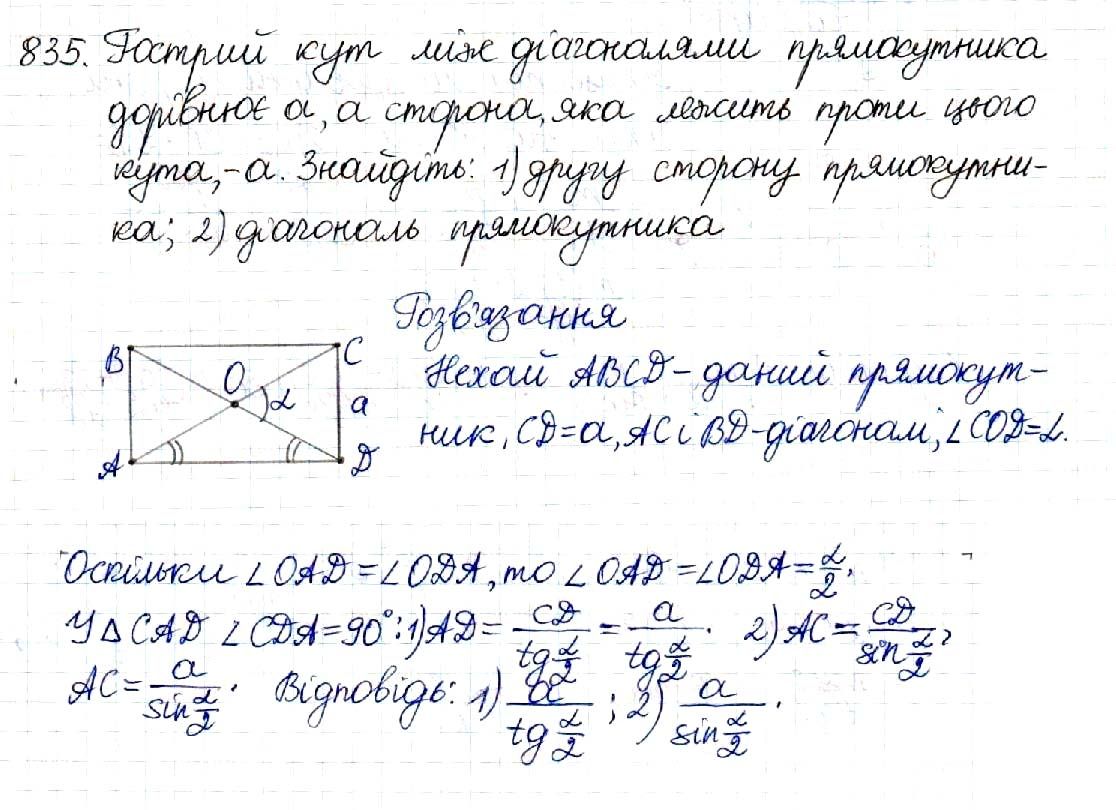 835. Гострий кут між діагоналями прямокутника
дорівнює α, а сторона, яка лежить проти цього
кута,-a. Знайдіть: 1) другу сторону прямокутни-
ка; 2) діагональ прямокутника
Розв'язання
B
O
C
α
a
A
D
Нехай ABCD - даний прямокут-
ник, CD=a, AC і BD-діагоналі, ∠COD=α.
Оскільки ∠OAD=∠ODA, то ∠OAD=∠ODA=α/2.
У ΔCAD ∠CDA=90°: 1) AD=CD/tg α/2=a/tg α/2. 2) AC=CD/sin α/2,
AC=a/sin α/2. Відповідь: 1) a/tg α/2; 2) a/sin α/2.